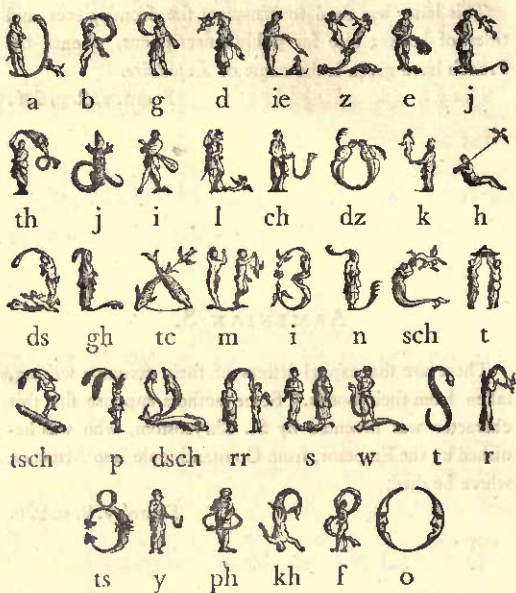 a b g d ie z e j
th j i l ch dz k h
ds gh tc m i n sch t
tsch p dsch rr s w t r
ts y ph kh f o